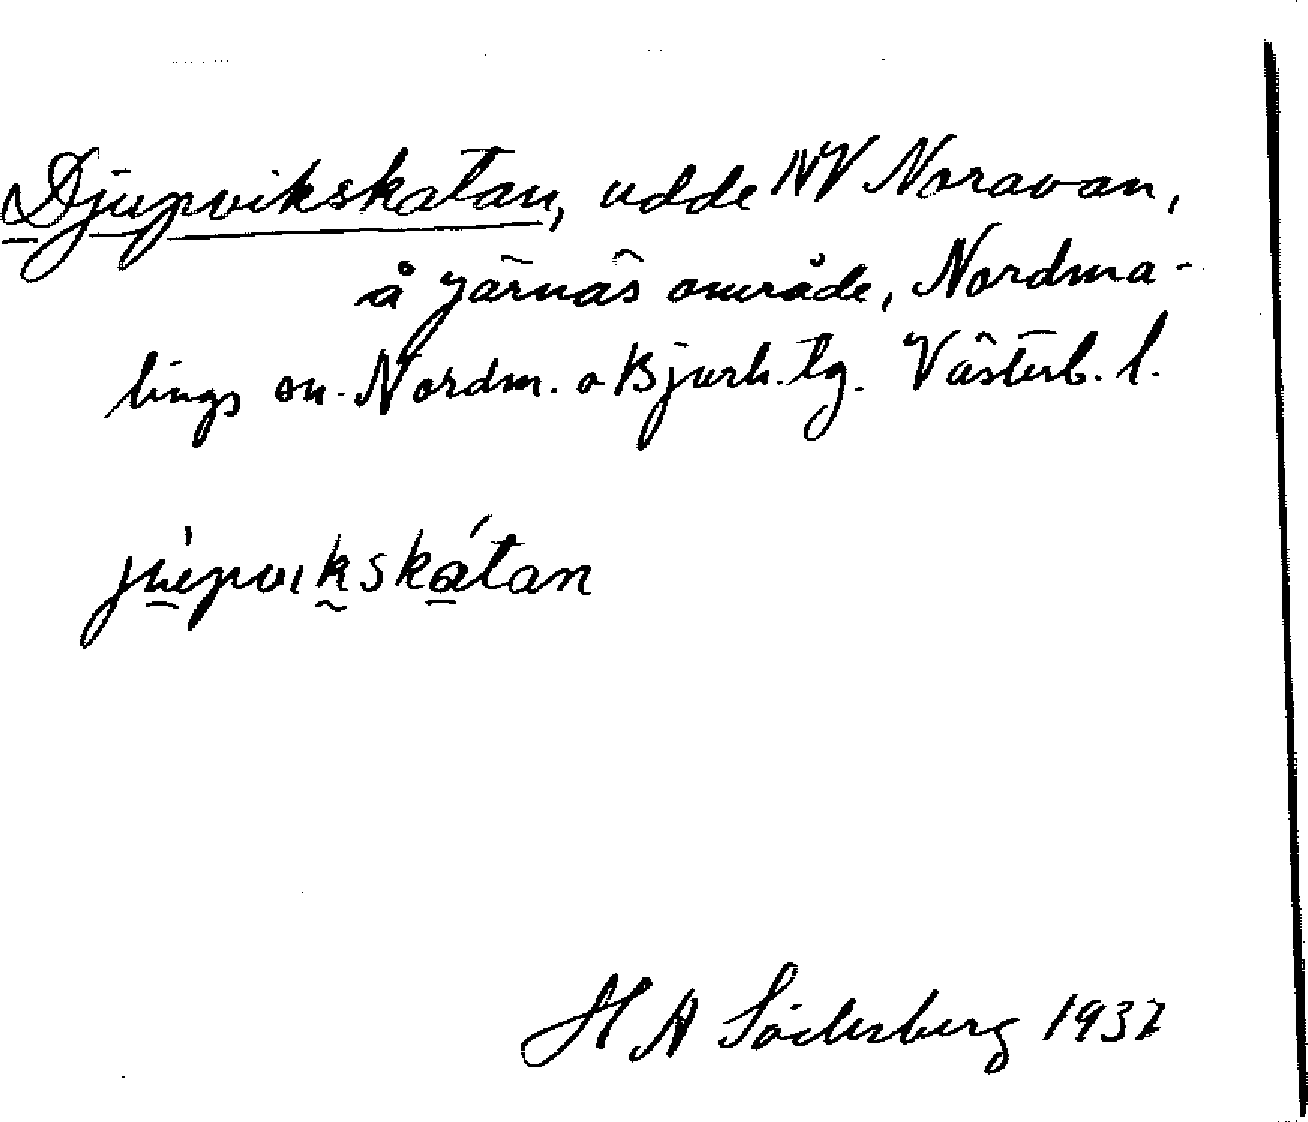 Djupvikskatan, udde NV Noravan,
å Järnäs område, Nordma-
lings sn. Nordm. o Bjurh. tg. Västerb. l.
júpvikskátan
H A Söderberg 1932